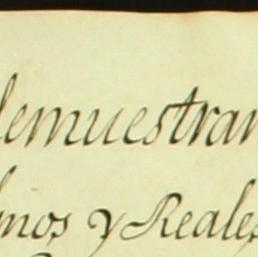 demuestran
mos y Reales